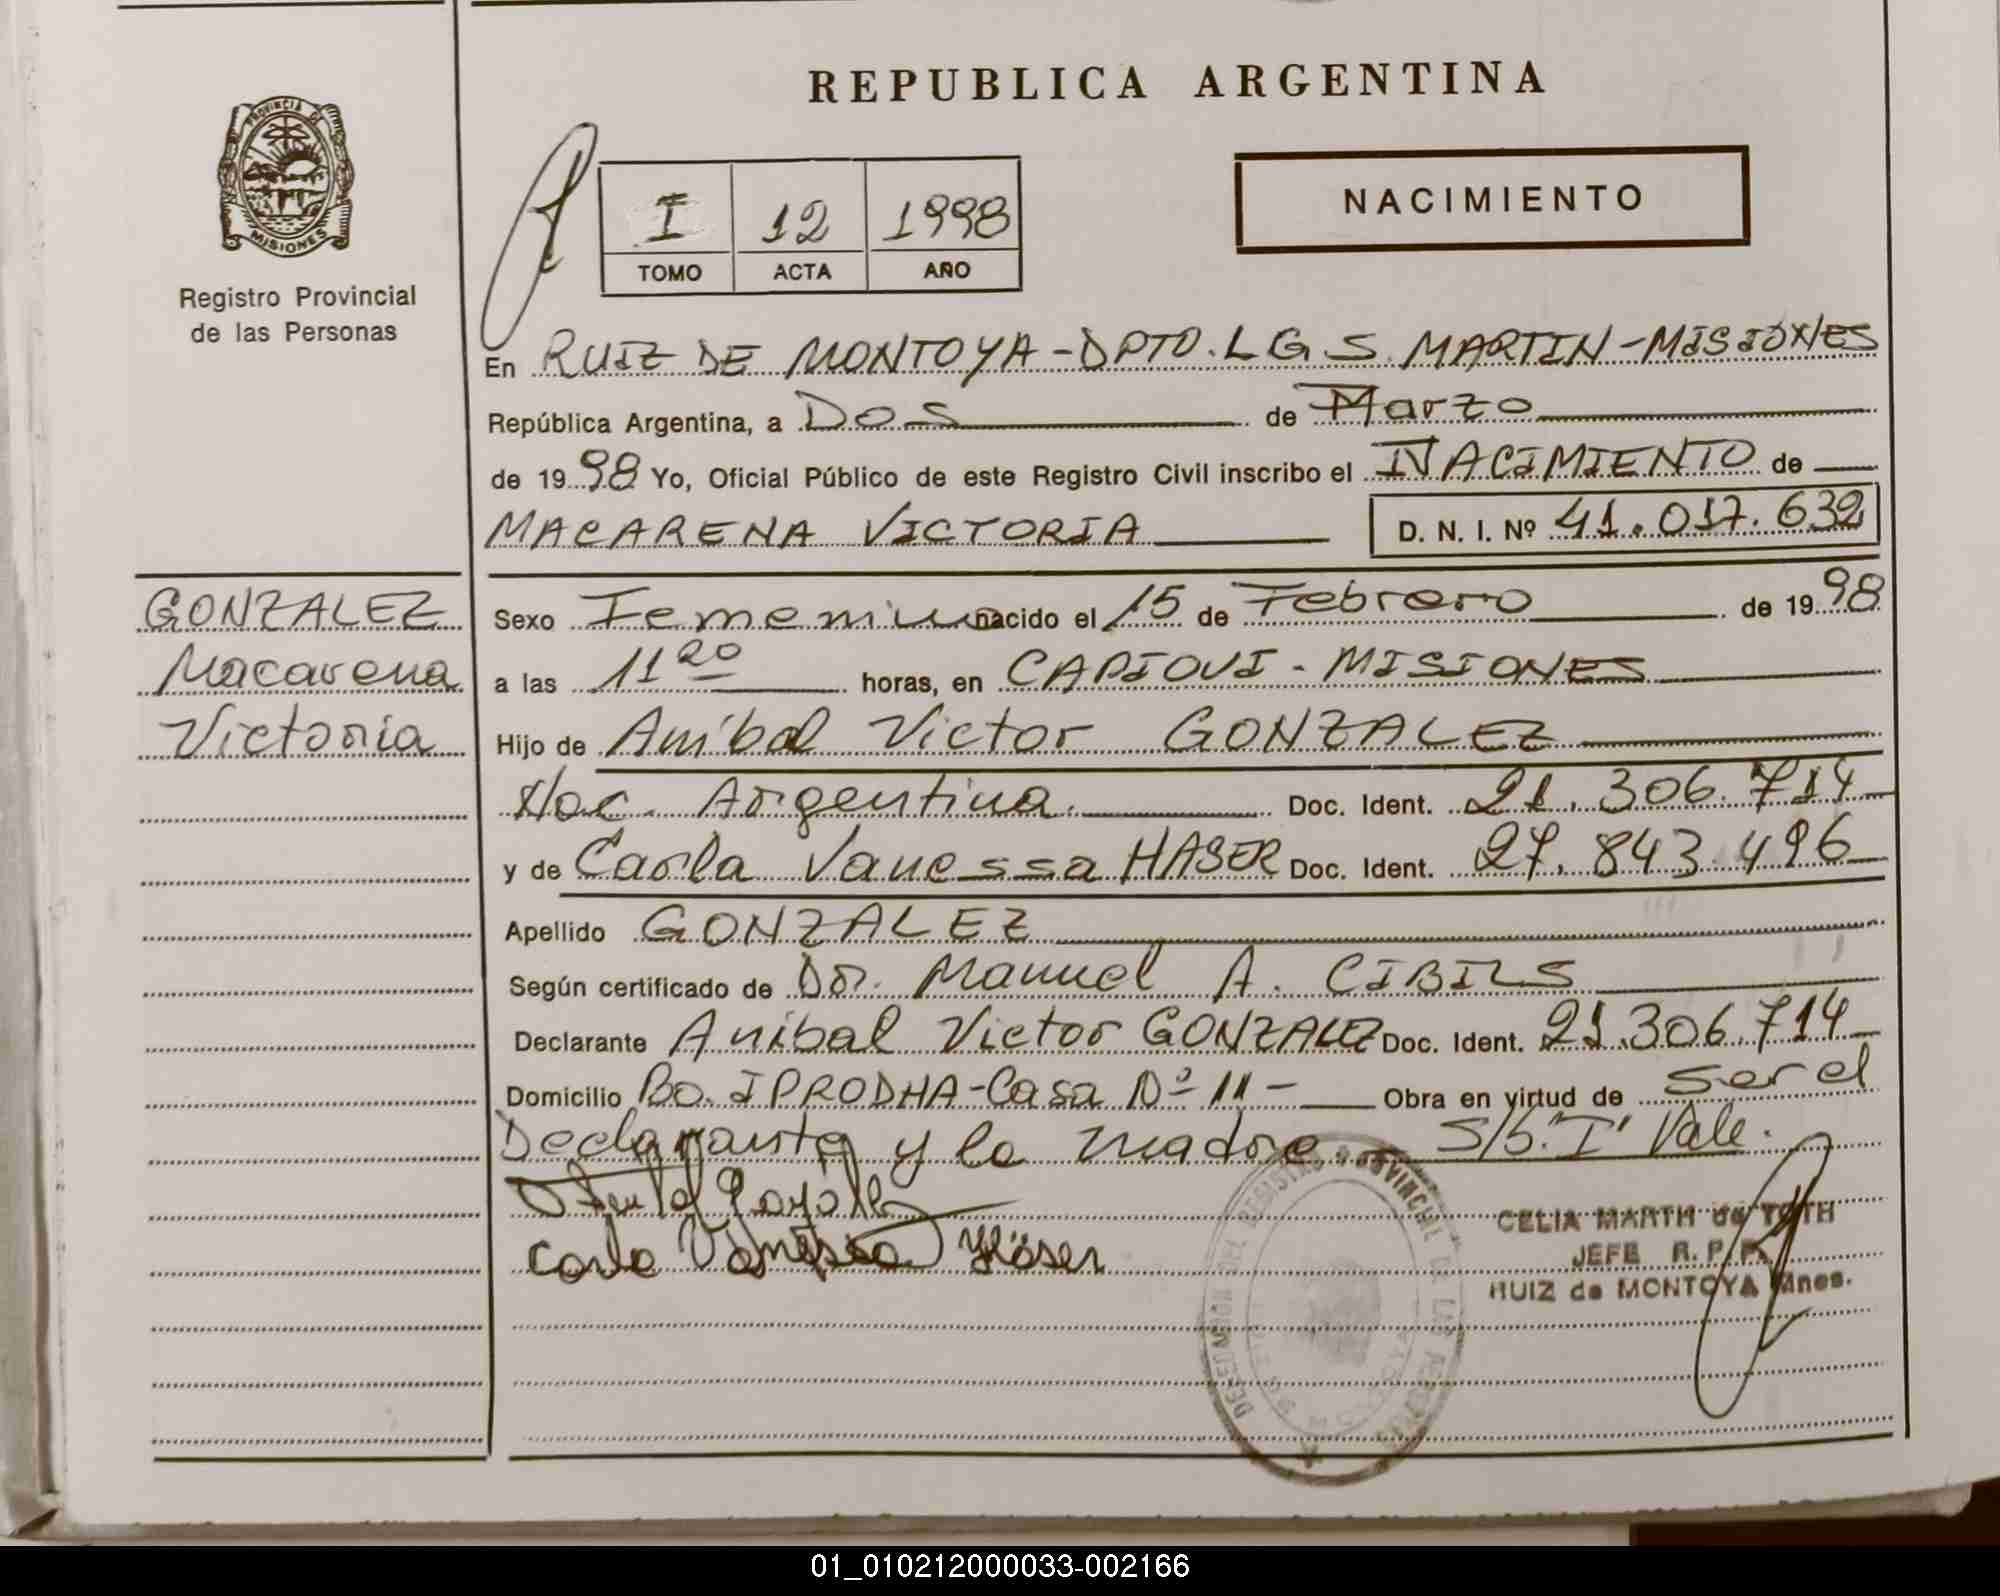 REPUBLICA ARGENTINA
PROVINCIA DE
MISIONES
Registro Provincial
de las Personas
I 12 1998
TOMO ACTA AÑO
NACIMIENTO
En RUIZ DE MONTOYA-DPTO.L G.S. MARTIN-MISIONES
República Argentina, a Dos de Marzo
de 1998 Yo, Oficial Público de este Registro Civil inscribo el NACIMIENTO de
MACARENA VICTORIA D. N. I. Nº 41.017.632
GONZALEZ
Macarena
Victoria
Sexo Femenino nacido el 15 de Febrero de 1998
a las 11 20 horas, en CAPIOVI - MISIONES
Hijo de Aníbal Victor GONZALEZ
Nac. Argentina. Doc. Ident. 21.306.714
y de Carla Vanessa HASER Doc. Ident. 27.843.496
Apellido GONZALEZ
Según certificado de Dr. Manuel A. CIBILS
Declarante Anibal Victor GONZALEZ Doc. Ident. 21.306.714
Domicilio Bo. IPRODHA-Casa Nº 11- Obra en virtud de ser el
Declarante y la madre S/b. "I" Vale.
Carla Vanessa Häser
CELIA MARTH de TOTH
JEFE R.P.P.
RUIZ de MONTOYA Mnes.
DELEGACION DEL REGISTRO PROVINCIAL DE LAS PERSONAS
01_010212000033-002166